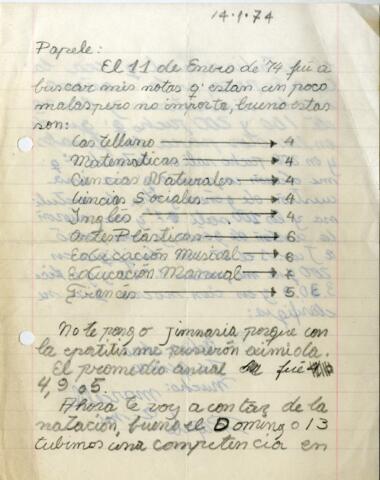 14.1.74
Papele:
El 11 de Enero de 74 fui a
buscar mis notas q' estan un poco
malas pero no importa, bueno estas
son:
Castellano → 4
Matematicas → 4
Ciencias Naturales → 4
Ciencias Sociales → 4
Inglés → 4
Artes Plásticas → 6
Educación Musical → 6
Educación Manual → 7
Francés → 5
No te pongo jimnacia porque con
la epatitis me pusierón
El promedio anual fué
4,9 o 5.
Ahora te voy a contar de la
natación, bueno el Domingo 13
tubimos una competencia en